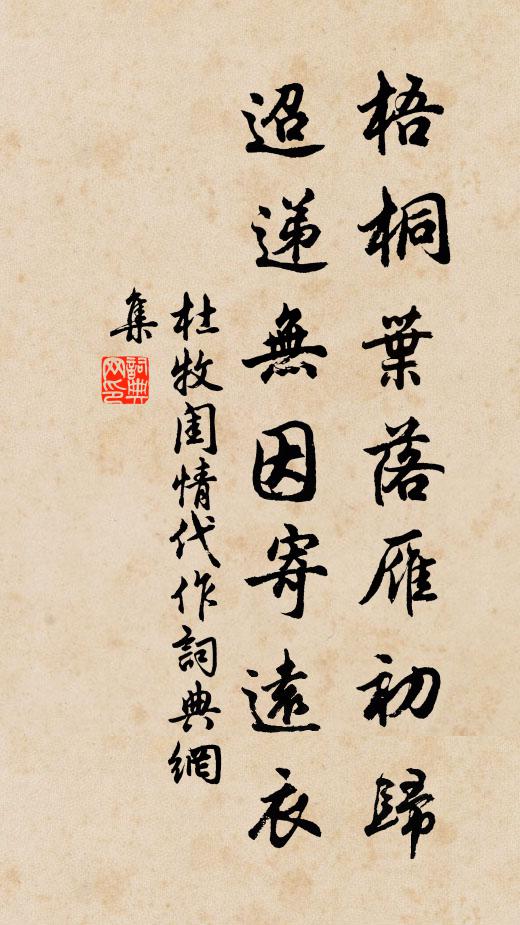 梧桐葉落雁初歸
迢遞無因寄遠衣
杜牧閨情代作詞典網
集
詞典網印